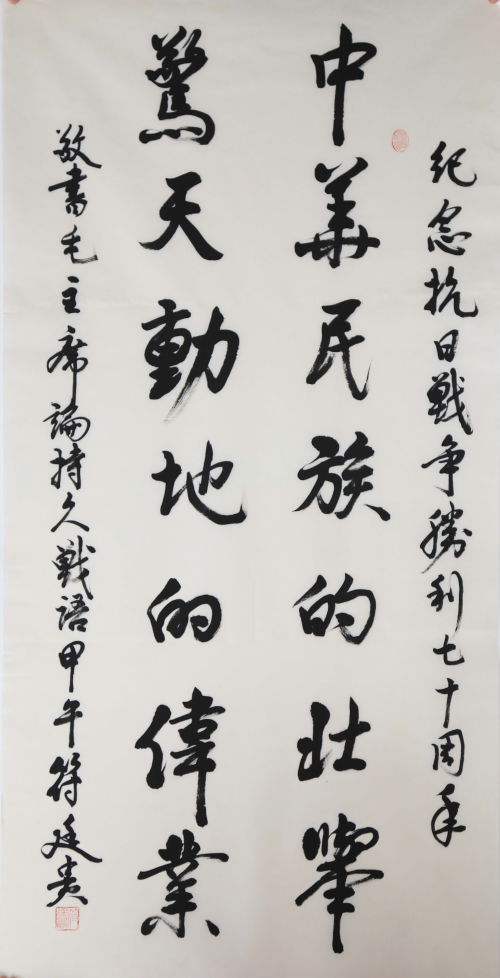 纪念抗日戰争勝利七十周年
中華民族的壮舉
驚天動地的偉業
敬書毛主席論持久戰語甲午符廷贵